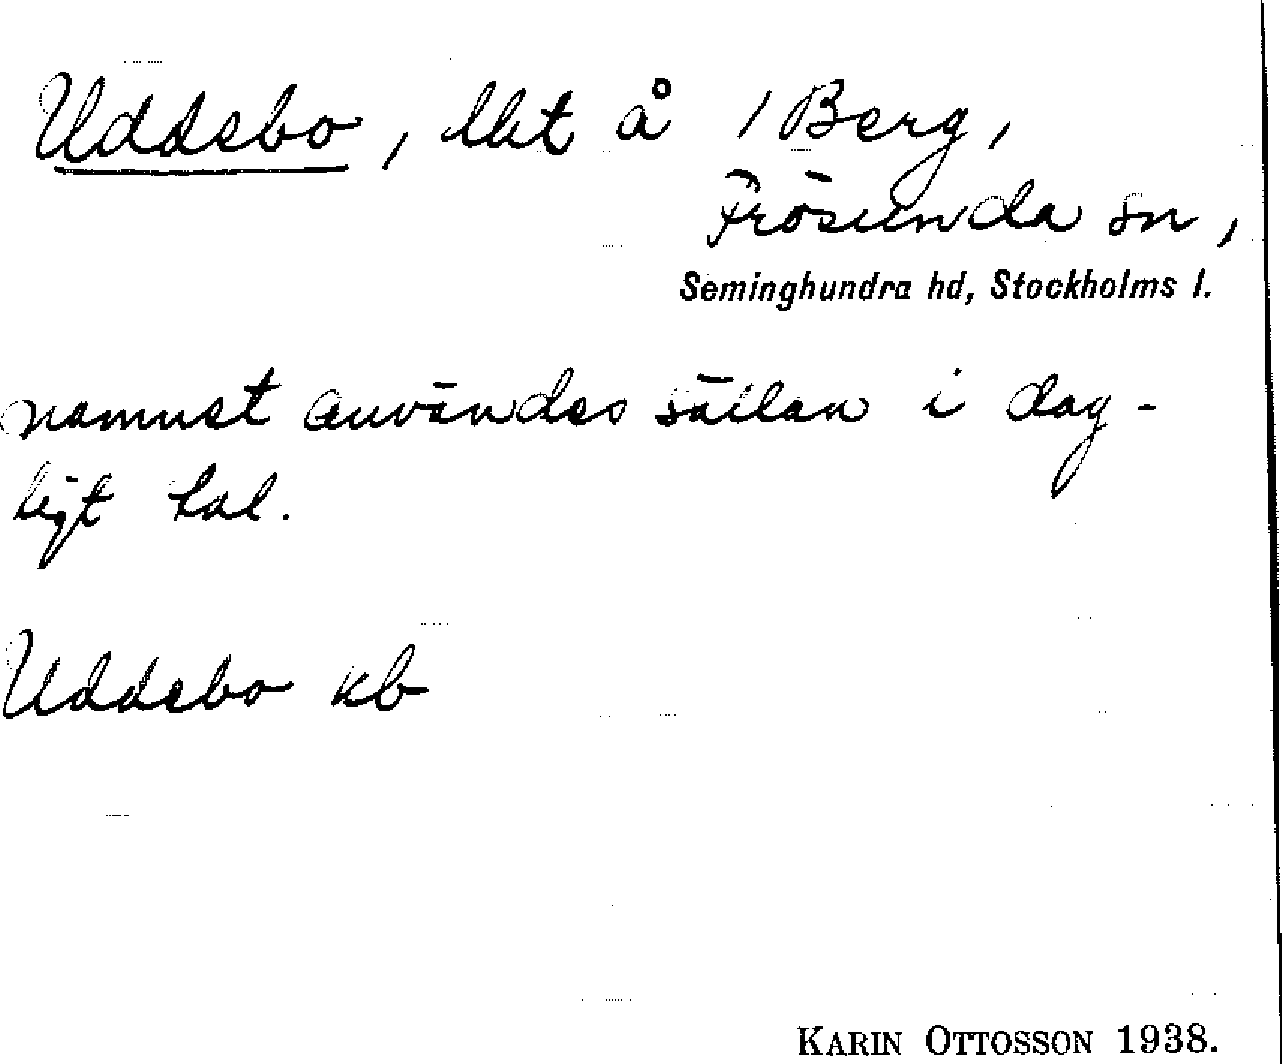 Uddebo, lht å 1 Berg,
Frösunda sn,
Seminghundra hd, Stockholms l.
namnet användes sällan i dag-
ligt tal.
Uddebo kb
KARIN OTTOSSON 1938.